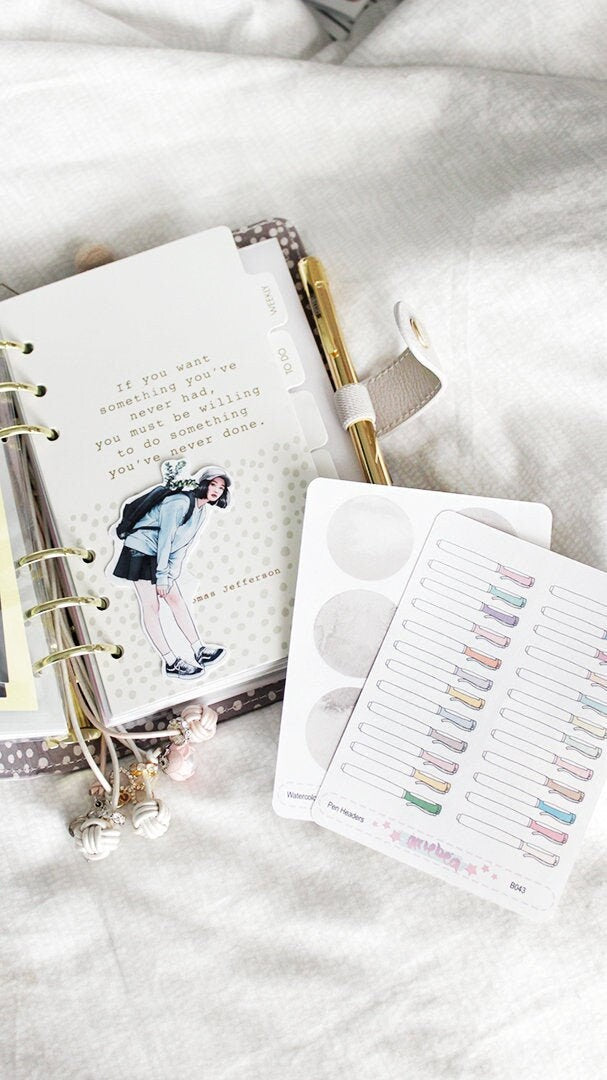 WEEKLY
TO DO
If you want
something you've
never had,
you must be willing
to do something
you've never done.
omas Jefferson
Pen Headers
B043